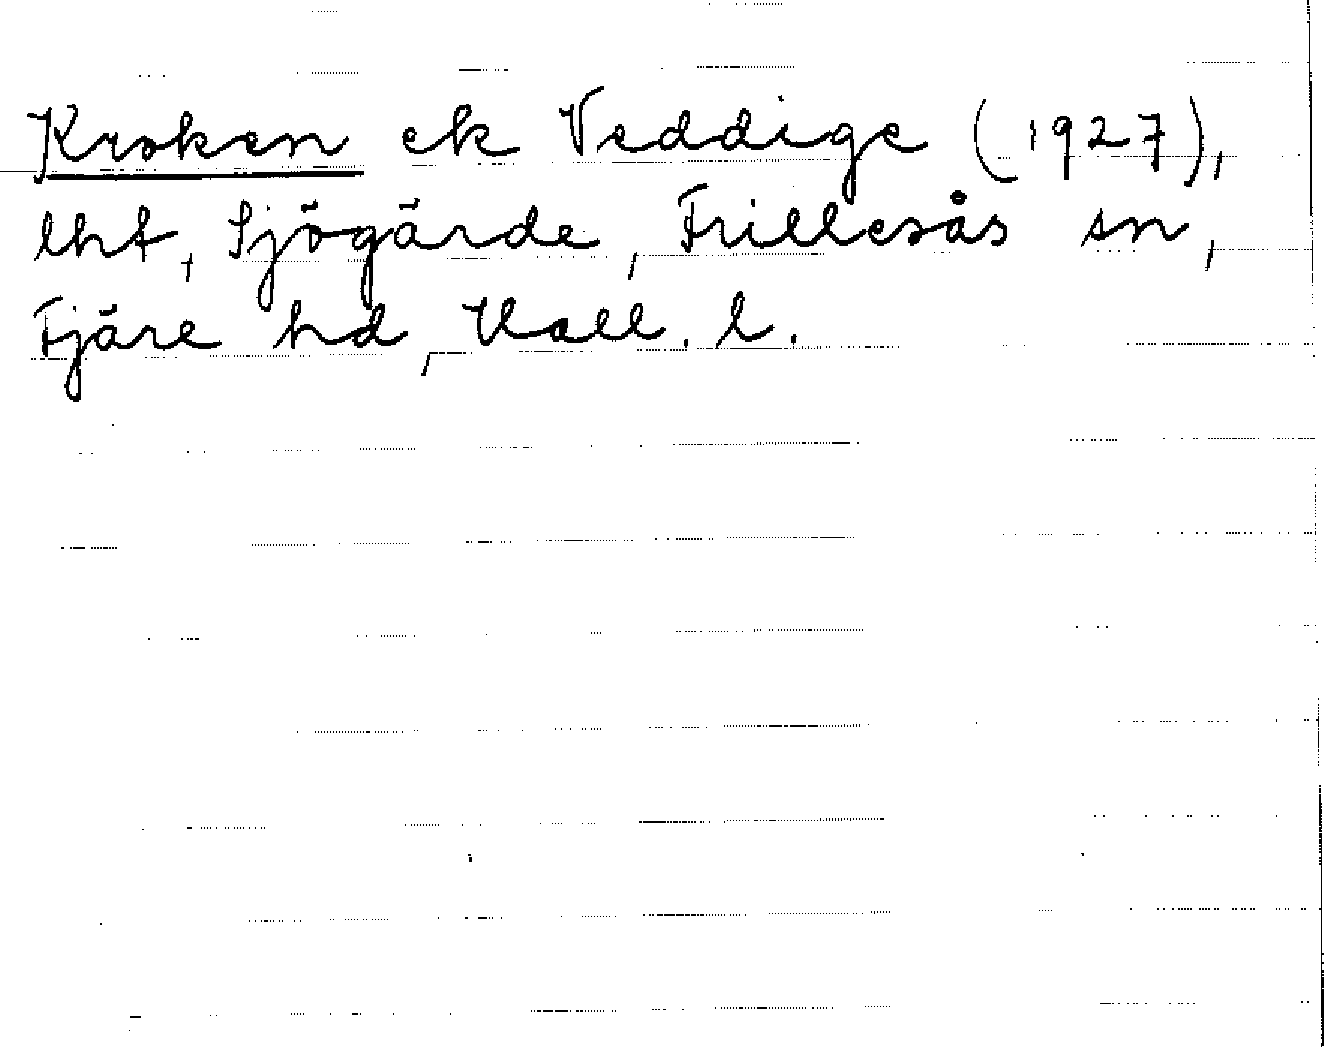 Kroken ek Veddige (1927),
lht, Sjögärde, Frillesås sn,
Fjäre hd, Hall. l.